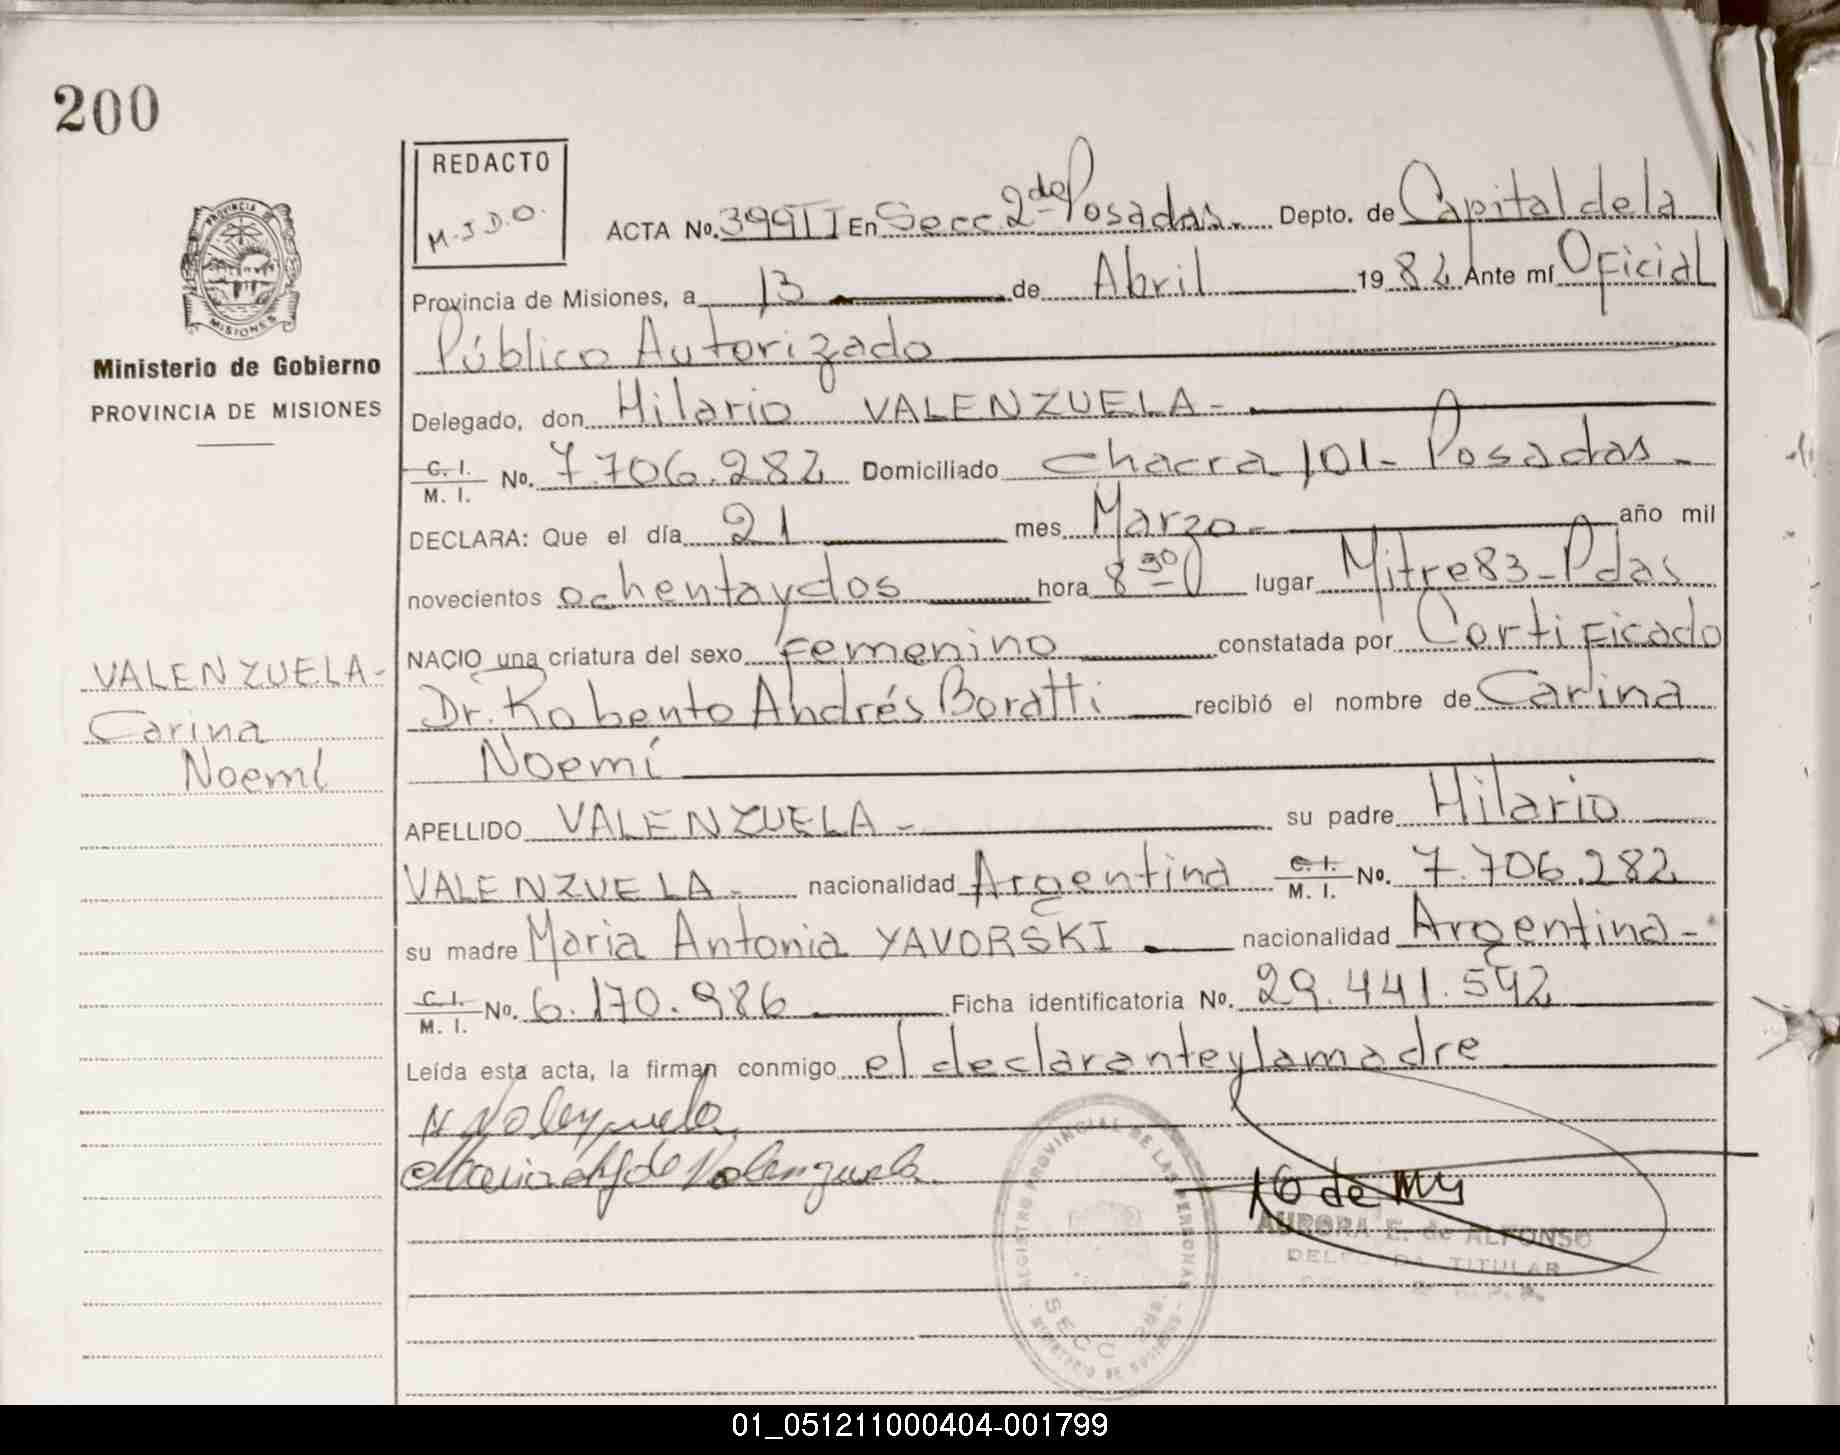 200
REDACTO
M.J.D.O.
ACTA No. 399 II En Secc. 2da Posadas. Depto. de Capital de la
Provincia de Misiones, a 13 de Abril 1982 Ante mí Oficial
Público Autorizado
Delegado, don Hilario VALENZUELA-
C. I. M. I. No. 7.706.282 Domiciliado Chacra 101- Posadas-
DECLARA: Que el día 21 mes Marzo- año mil
novecientos ochenta y dos hora 8 30 lugar Mitre 83-Pdas
NACIO una criatura del sexo femenino constatada por Certificado
Dr. Roberto Andrés Boratti recibió el nombre de Carina
Noemí
APELLIDO VALENZUELA- su padre Hilario
VALENZUELA- nacionalidad Argentina C. I. M. I. No. 7.706.282
su madre Maria Antonia YAVORSKI nacionalidad Argentina-
C. I. M. I. No. 6.170.986 Ficha identificatoria No. 29.441.592
Leída esta acta, la firman conmigo el declarante y la madre
H Valenzuela
Maria de Valenzuela
PROVINCIA DE
MISIONES
Ministerio de Gobierno
PROVINCIA DE MISIONES
VALENZUELA-
Carina
Noemí
REGISTRO PROVINCIAL DE LAS PERSONAS
SECC. 2da.
AURORA E. de ALFONSO
DELEGADA TITULAR
01_051211000404-001799